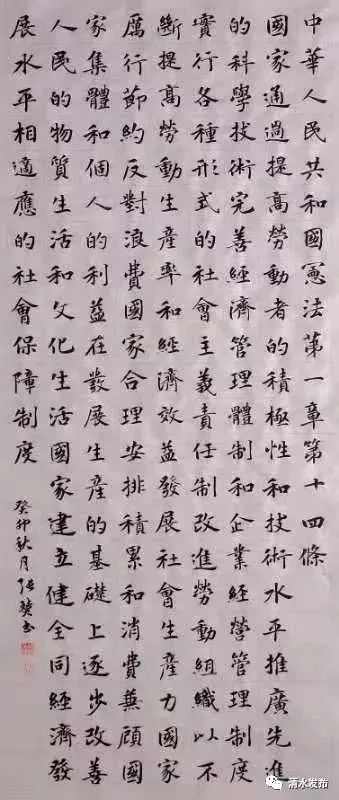 中華人民共和國憲法第一章第十四條
國家通過提高勞動者的積極性和技術水平推廣先進
的科學技術完善經濟管理體制和企業經營管理制度
實行各種形式的社會主義責任制改進勞動組織以不
斷提高勞動生產率和經濟效益發展社會生產力國家
厲行節約反對浪費國家合理安排積累和消費兼顧國
家集體和個人的利益在發展生產的基礎上逐步改善
人民的物質生活和文化生活國家建立健全同經濟發
展水平相適應的社會保障制度
癸卯秋月
清水发布